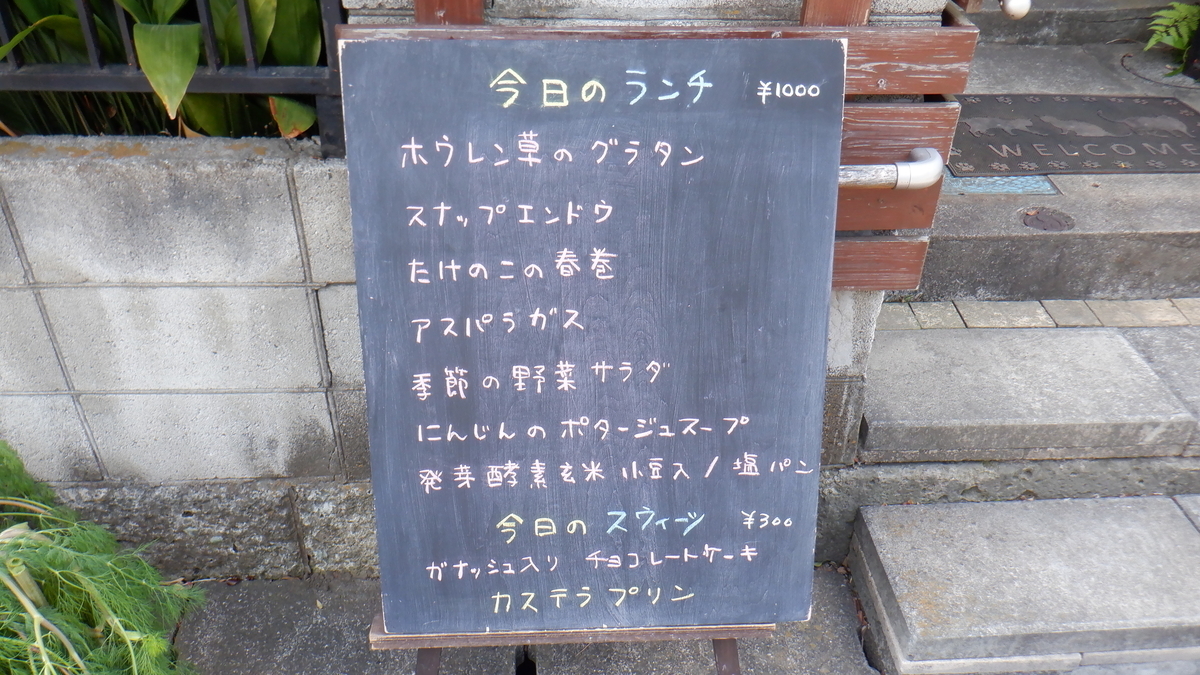 今日のランチ ¥1000
ホウレン草のグラタン
スナップエンドウ
たけのこの春巻
アスパラガス
季節の野菜サラダ
にんじんのポタージュスープ
発芽酵素玄米 小豆入 / 塩パン
今日のスウィーツ ¥300
ガナッシュ入り チョコレートケーキ
カステラプリン
WELCOME